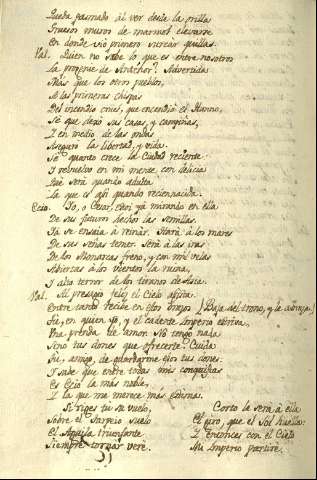 Queda pasmado al ver desde la orilla
Gruesos muros de marmol elevarse
En donde vió primero vacear quillas.
Val. Quien no sabe lo que es entre nosotros
la progenie de Advertidas
Más que los otros pueblos,
A las primeras chispas
Del incendio que encendió el Hunno,
Sé que dexó sus casas, y campiñas,
I en medio de las ondas
Aseguró la libertad, y vida.
Sé quanto crece la Ciudad reciente
I rebuelvo en mi mente con delicia
Que será quando adulta
la que es asi quando reciennacida.
Ecio. Yo, o Cesar, casi ya mirando en ella
De sus futuros hechos las semillas.
Ya se ensaia à reinar. Hará à los mares
De sus señas temer. Será à las iras
De los Monarcas freno, y con mil velas
Abiertas à los vientos la ruina,
I alto terror de los tiranos de Asia.
Val. Al presagio feliz el Cielo asista.
Entre tanto recibe en estos brazos (Baja del trono, y le abraza)
Tu, en quien yo, y el cadente Imperio estriva,
Una prenda de amor. No tengo nada
Sino tus dones que ofrecerte. Cuida
Tu, amigo, de guardarme estos tus dones:
I sabe que entre todas mis conquistas
Es Ecio la más noble,
I la que me merece mas estima.
Si riges tu su vuelo,
Sobre el Tarpeio suelo
El Aguila triunfante
Siempre tornar veré.
Corto la será à ella
El giro, que el Sol huella:
I entonces con el Cielo
Mi Imperio partiré.